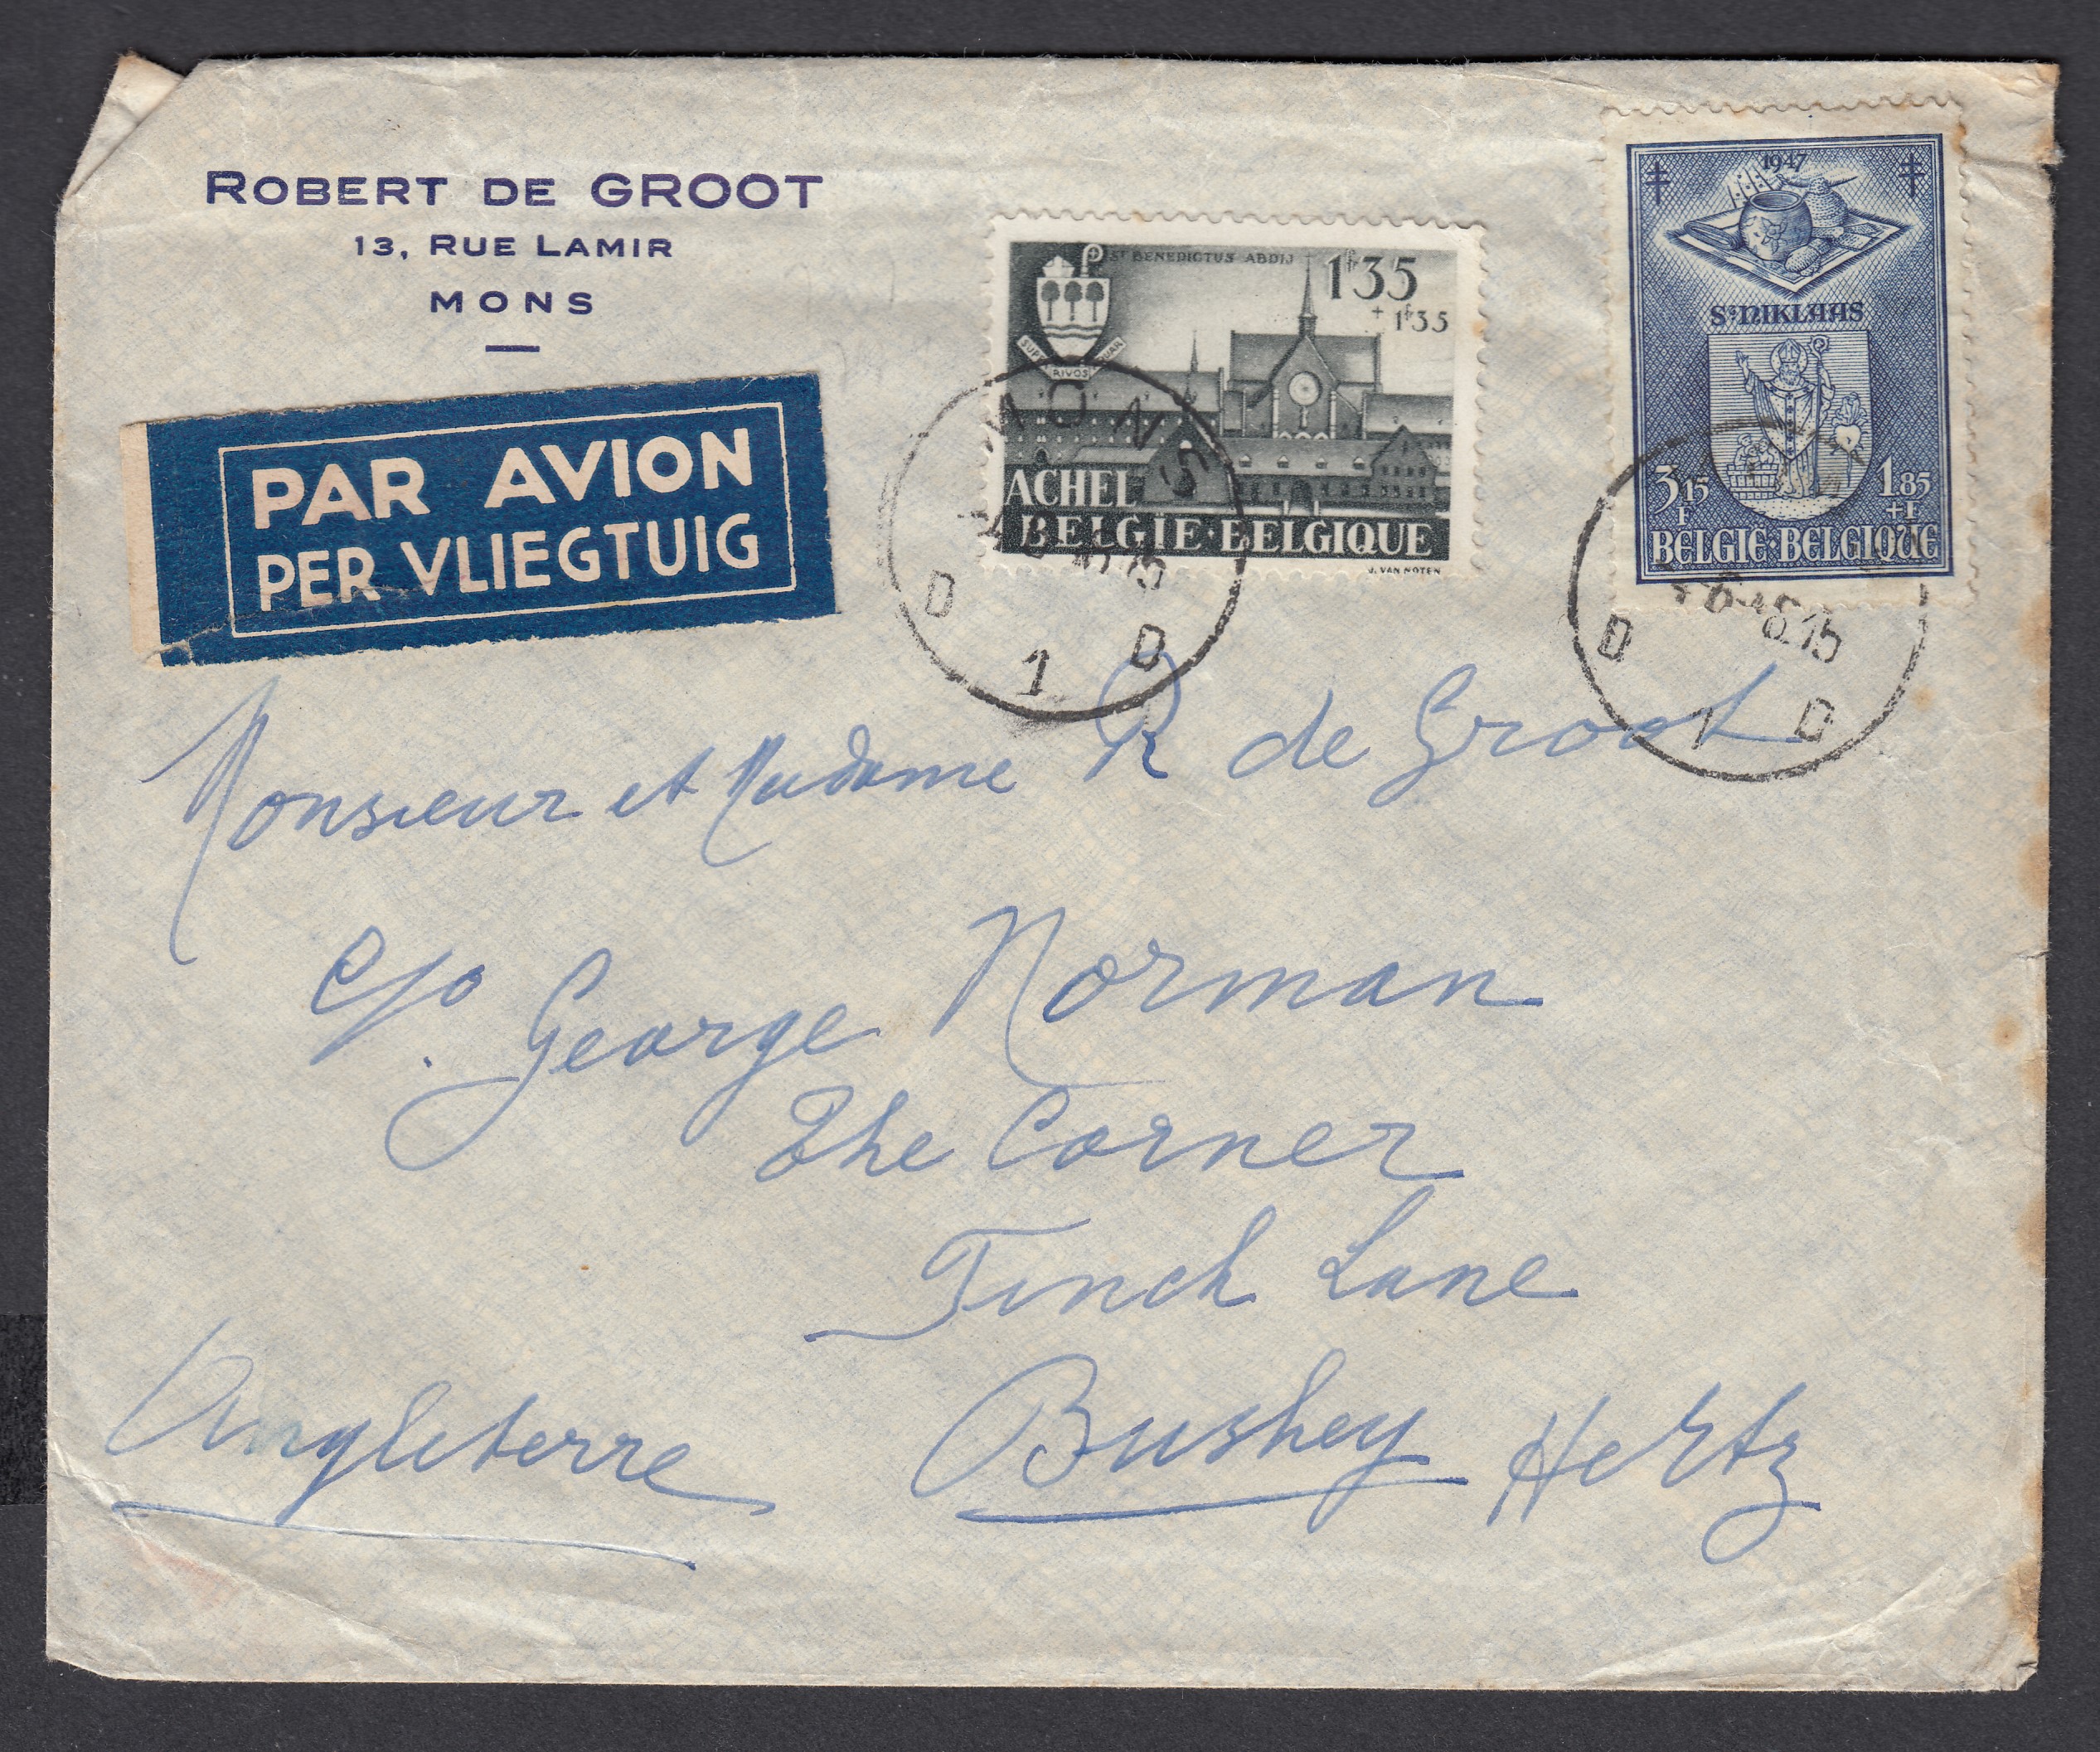 ROBERT DE GROOT
13, RUE LAMIR
MONS
PAR AVION
PER VLIEGTUIG
ST BENEDICTUS ABDIJ
1F35
+ 1F35
RIVOS
ACHEL
BELGIE·BELGIQUE
J. VAN NOTEN
1947
ST NIKLAAS
3F15
1.85
+F
BELGIË·BELGIQUE
MONS
D 1 D
D 1 D
Monsieur et Madame R de Groot
c/o. George Norman
The Corner
Finch Lane
Bushey Hertz
Angleterre